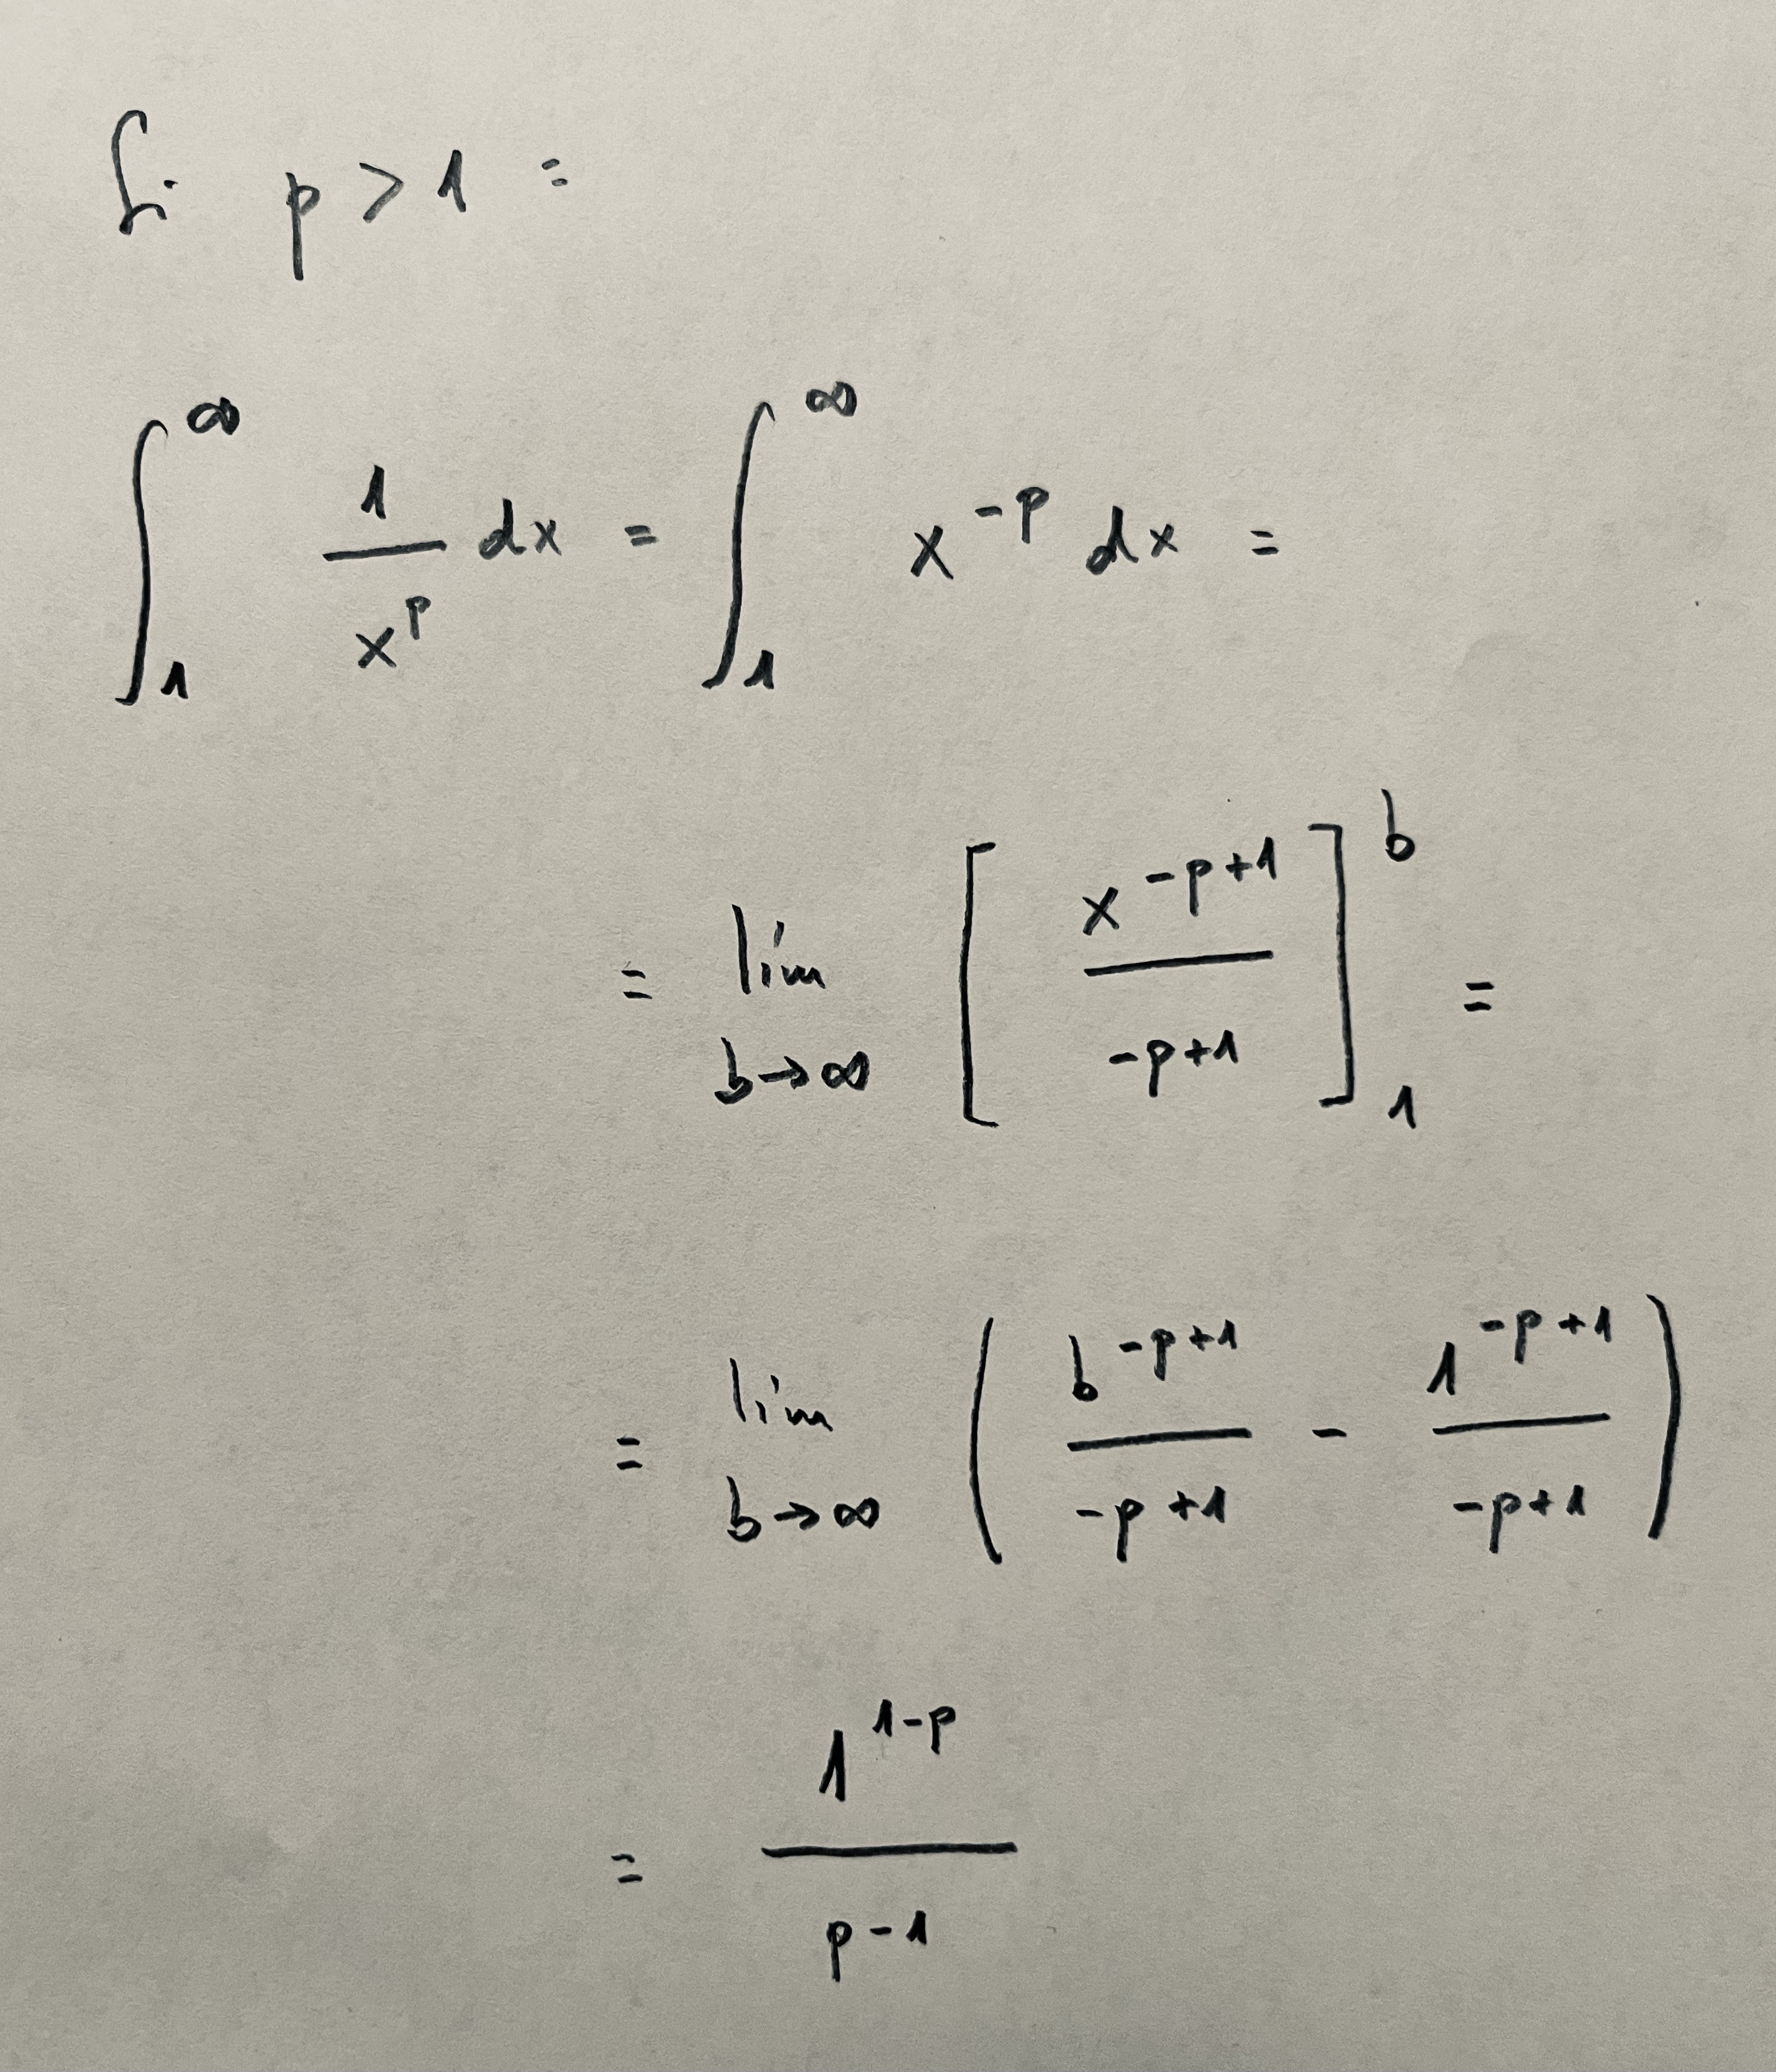 Si p > 1 :
∫₁^∞ 1/x^p dx = ∫₁^∞ x^(-p) dx =
= lím_(b→∞) [ x^(-p+1) / (-p+1) ]₁^b =
= lím_(b→∞) ( b^(-p+1) / (-p+1) - 1^(-p+1) / (-p+1) )
= 1^(1-p) / (p-1)